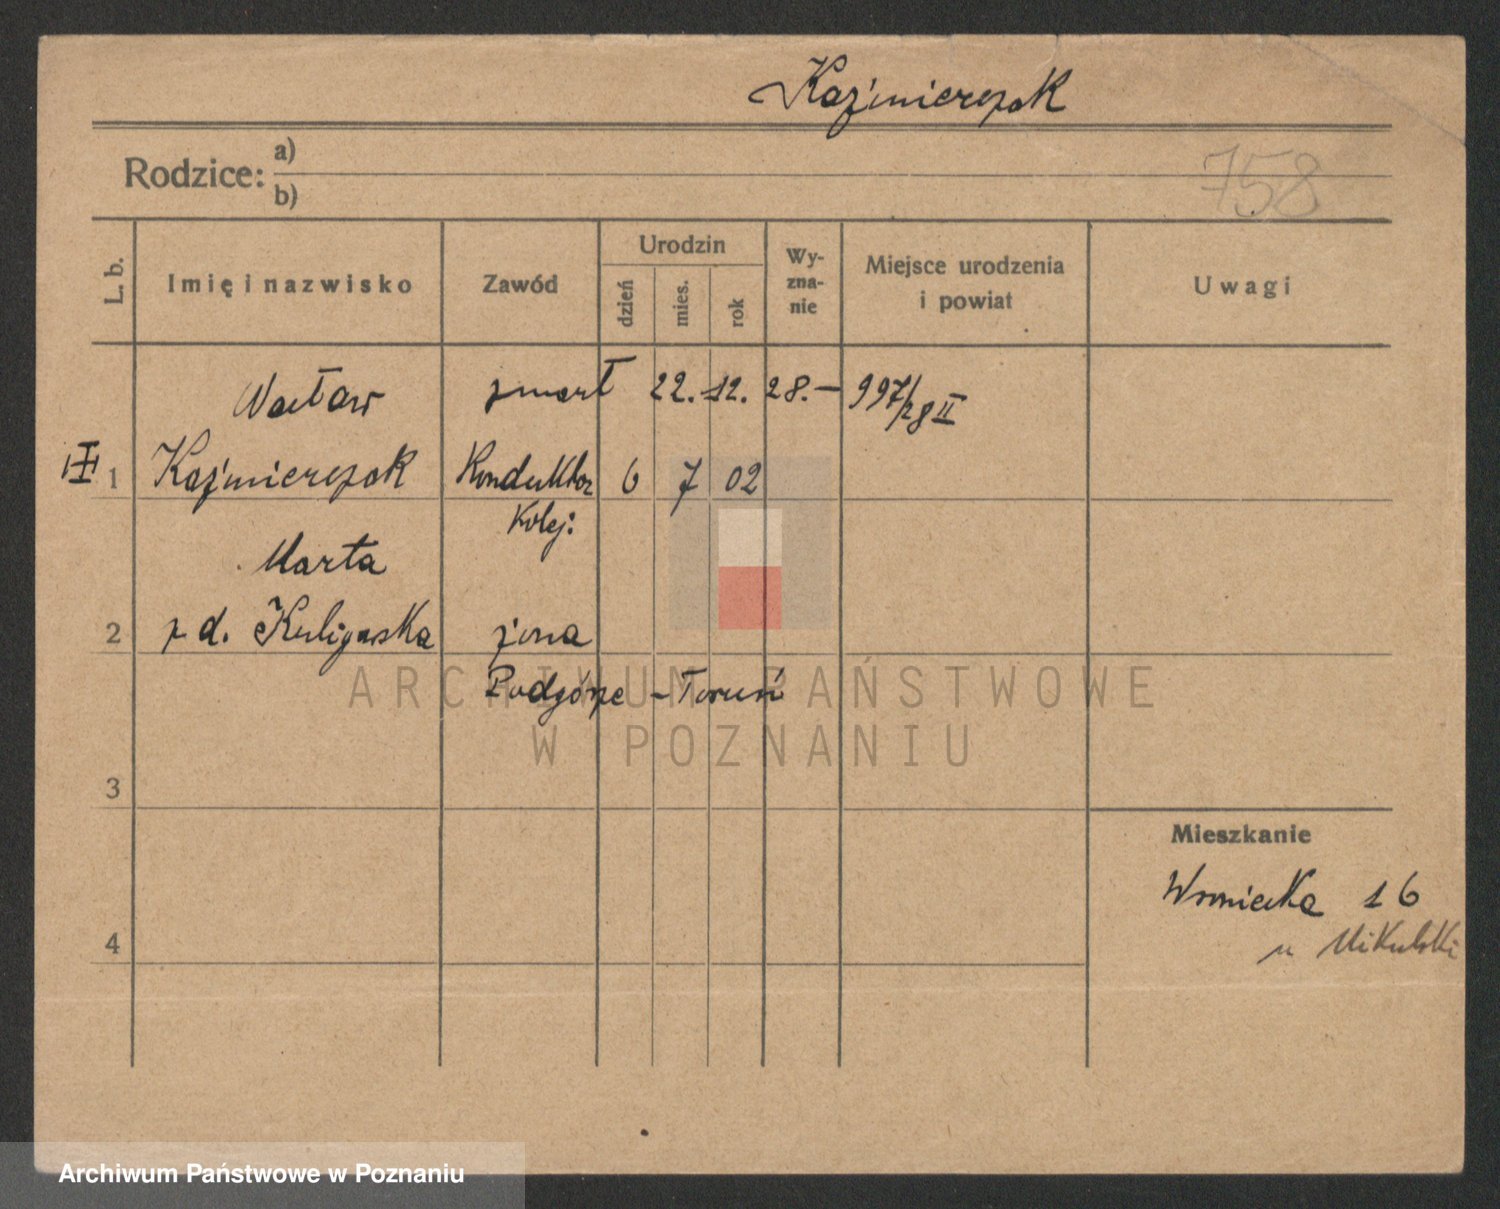 Kaźmierczak
Rodzice: a)
b)
758
L. b.
Imię i nazwisko
Zawód
Urodzin
dzień
mies.
rok
Wy-
zna-
nie
Miejsce urodzenia
i powiat
Uwagi
Wacław zmarł 22. 12. 28.– 997/28 II
III 1 Kaźmierczak Konduktor 6 7 02
Kolej:
Marta
2 z d. Kuligowska żona
Podgórze – Toruń
ARCHIWUM PAŃSTWOWE
W POZNANIU
3
Mieszkanie
Wroniecka 16
u Mikulski
4
Archiwum Państwowe w Poznaniu